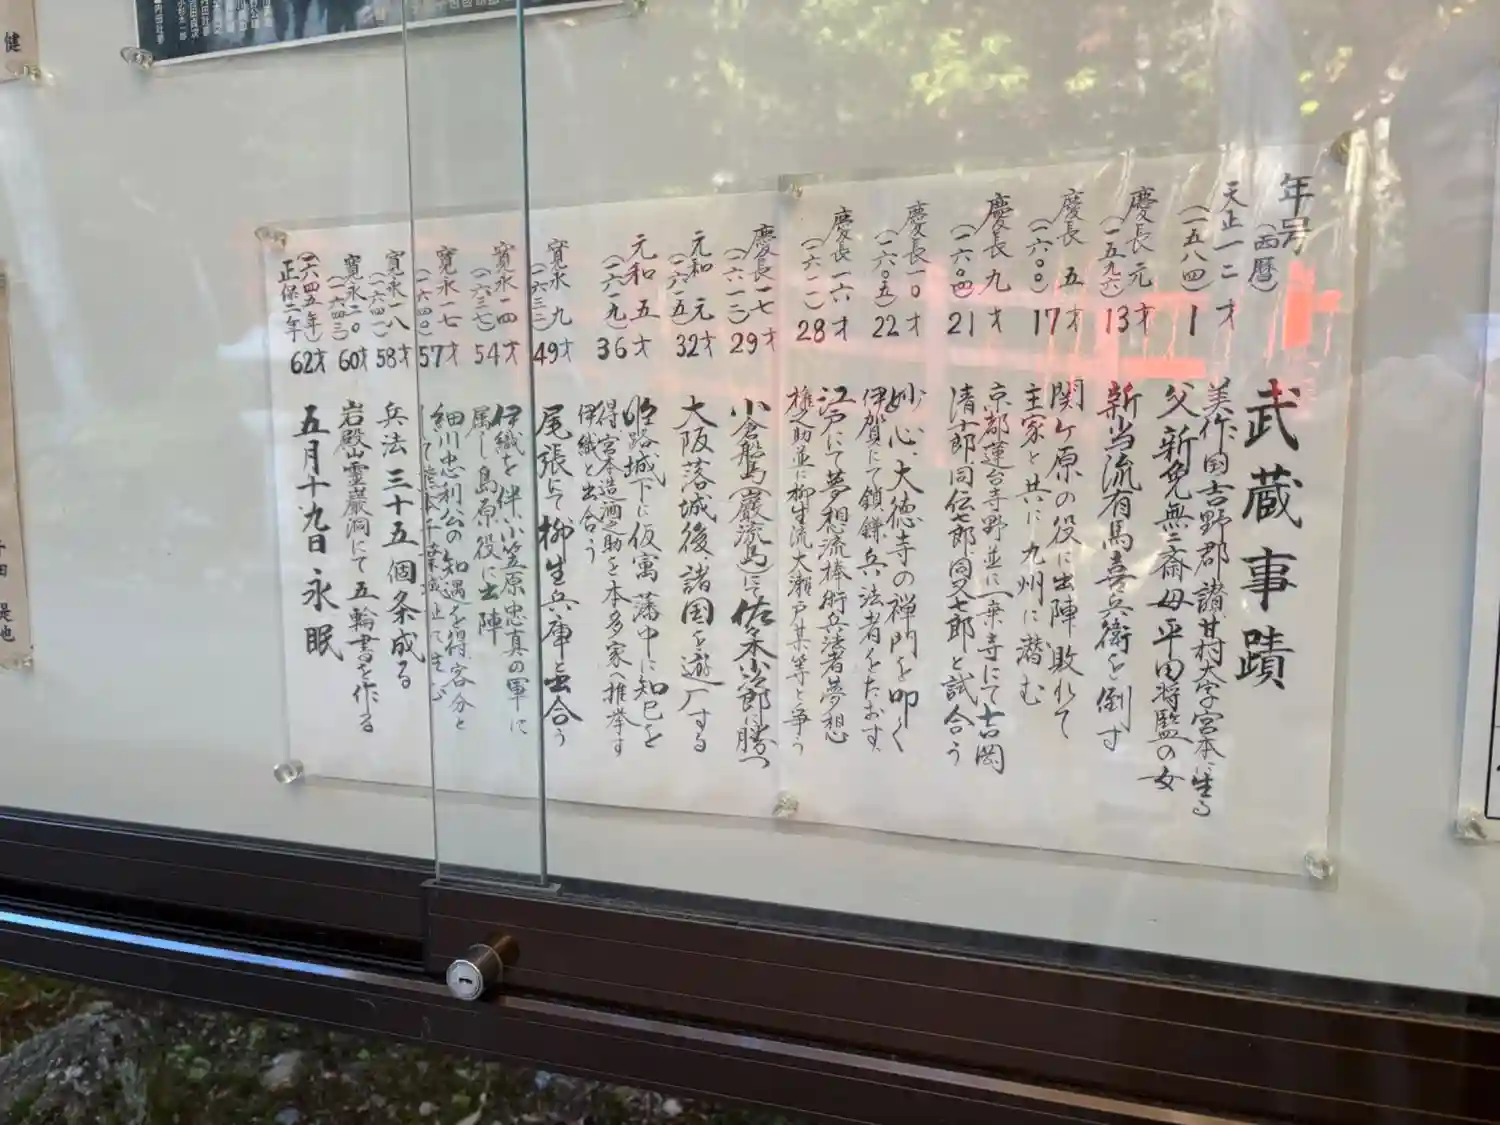 年号
(西暦)
武蔵事蹟
天正一二
(一五八四)
1才
美作国吉野郡讃甘村大字宮本に生る
父新免無二斎母平田将監の女
慶長元
(一五九六)
13才
新当流有馬喜兵衛を倒す
慶長五
(一六〇〇)
17才
関ヶ原の役に出陣敗れて
主家と共に九州に潜む
慶長九
(一六〇四)
21才
京都蓮台寺野並に一乗寺にて吉岡
清十郎同伝七郎、同又七郎と試合う
慶長一〇
(一六〇五)
22才
妙心、大徳寺の禅門を叩く
伊賀にて鎖鎌兵法者をたおす、
慶長一六
(一六一一)
28才
江戸にて夢想流棒術兵法者夢想
権之助並に柳生流大瀬戸某等と争う
慶長一七
(一六一二)
29才
小倉船島(巌流島)にて佐々木小次郎に勝つ
元和元
(一六一五)
32才
大阪落城後、諸国を遊するする
元和五
(一六一九)
36才
姫路城下に仮寓藩中に知己を
得宮本造酒之助を本多家へ推挙す
伊織と出合う
寛永九
(一六三二)
49才
尾張にて柳生兵庫と出合う
寛永一四
(一六三七)
54才
伊織を伴い小笠原忠真の軍に
属し島原役に出陣
寛永一七
(一六四〇)
57才
細川忠利公の知遇を得客分と
して熊本千葉城止て生ぶ
寛永一八
(一六四一)
58才
兵法三十五個条成る
寛永二〇
(一六四三)
60才
岩殿山霊巌洞にて五輪書を作る
(一六四五年)
正保二年
62才
五月十九日永眠
健